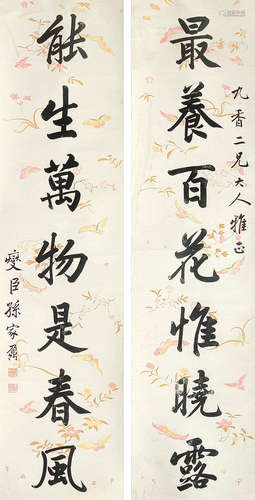 九香二兄大人雅正
最養百花惟曉露
能生萬物是春風
燮臣孫家鼐